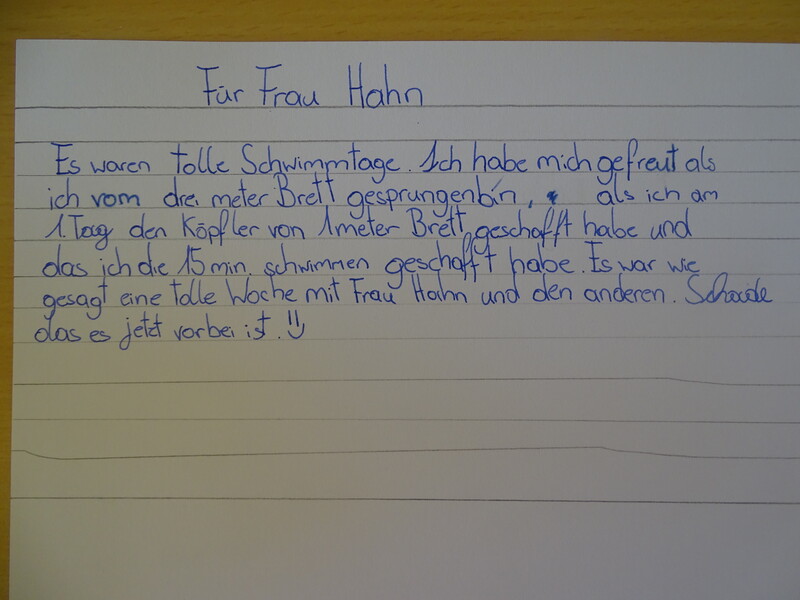 Für Frau Hahn
Es waren tolle Schwimmtage. Ich habe mich gefreut als
ich vom drei meter Brett gesprungen bin, als ich am
1. Tag den Köpfler von 1 meter Brett geschafft habe und
das ich die 15 min. schwimmen geschafft habe. Es war wie
gesagt eine tolle Woche mit Frau Hahn und den anderen. Schade
das es jetzt vorbei ist. !!